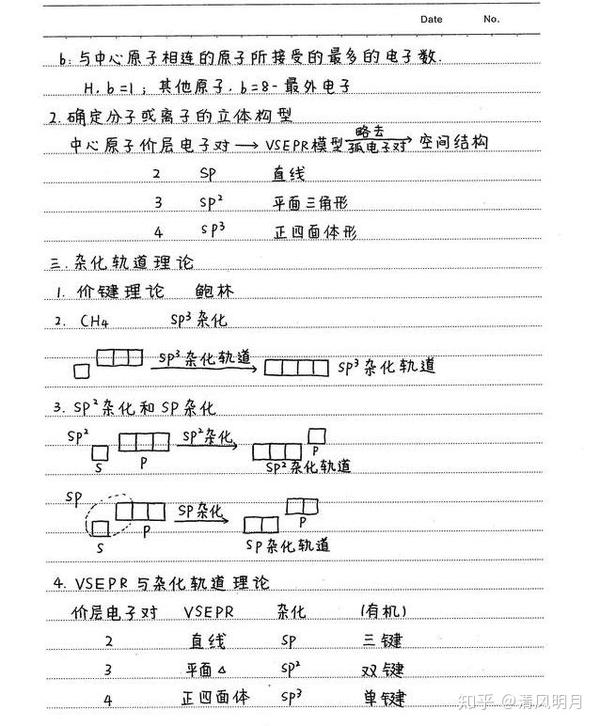 Date No.
b:与中心原子相连的原子所接受的最多的电子数.
H, b=1; 其他原子, b=8-最外电子
2.确定分子或离子的立体构型
中心原子价层电子对→VSEPR模型 略去孤电子对 空间结构
2 SP 直线
3 SP² 平面三角形
4 SP³ 正四面体形
三.杂化轨道理论
1. 价键理论 鲍林
2. CH₄ SP³杂化
SP³杂化轨道 SP³杂化轨道
3. SP²杂化和SP杂化
SP² S P SP²杂化 SP²杂化轨道 P
SP S P SP杂化 SP杂化轨道 P
4. VSEPR与杂化轨道理论
价层电子对 VSEPR 杂化 (有机)
2 直线 SP 三键
3 平面△ SP² 双键
4 正四面体 SP³ 单键
知乎 @清风明月